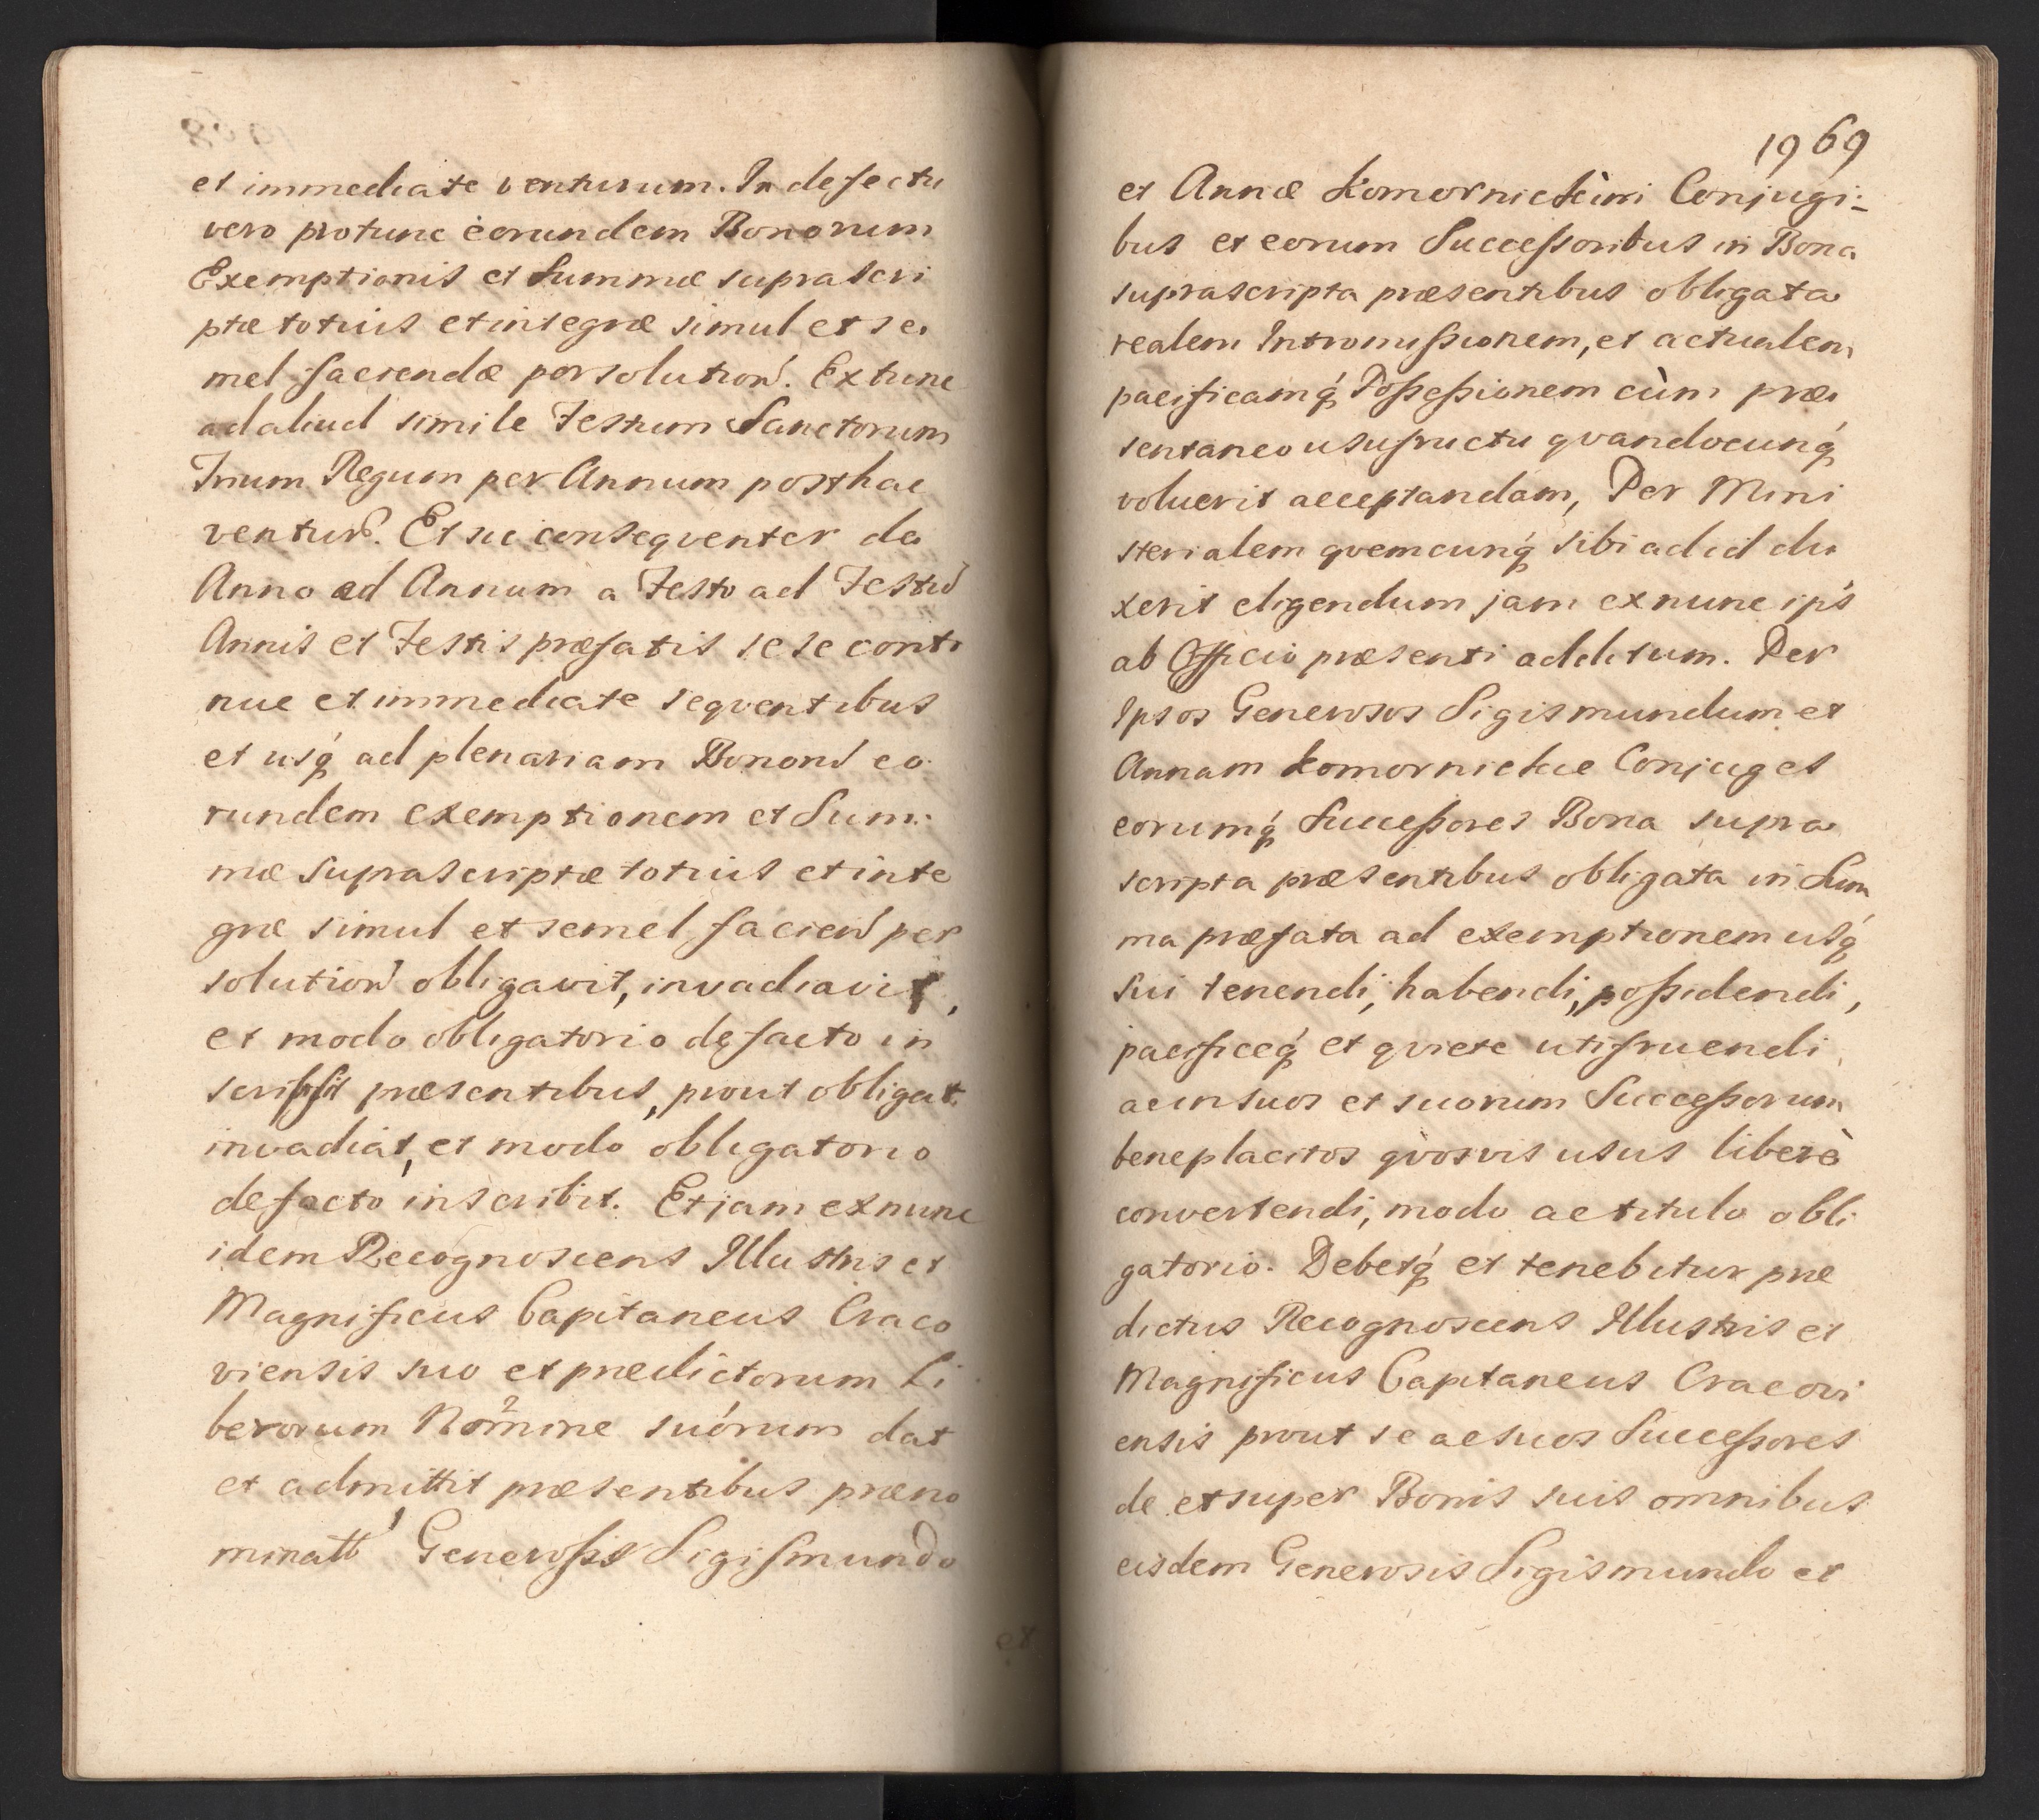 et immediate venturum. In defectu
vero protunc eorundem Bonorum
Exemptionis et Summæ suprascri
ptæ totius et integræ simul et se
mel faciendæ persolution̄. Extunc
ad aliud simile Festum Sanctorum
Trium Regum per Annum posthac
ventur̄. Et sic consequenter de
Anno ad Annum a Festo ad Festū
Annis et Festis præfatis se se conti
nue et immediate seqventibus
et usq́ ad plenariam Bonor̄ eo
rundem exemptionem et Sum:
mæ suprascriptæ totius et inte
græ simul et semel facien̄ per
solution̄ obligavit, invadiavit,
et modo obligatorio de facto in
scripsit præsentibus, prout obligat.
invadiat, et modo obligatorio
de facto inscribit. Et jam ex nunc
idem Recognoscens Illustris et
Magnificus Capitaneus Craco
viensis suo et prædictorum Li
berorum Nomine suórum dat
et admittit præsentibus præno
minatt Generosis Sigismundo
1969
et Annæ Komornickim Conjugi:
bus et eorum Successoribus in Bona
suprascripta præsentibus obligata
realem Intromissionem, et actualem
pacificamq́ Possessionem cùm præ
sentaneo usufructu qvandocunq́
voluerit acceptandam, Per Mini
sterialem qvemcunq́ sibi ad id du
xerit eligendum jam ex nunc ip̄s
ab Officio præsenti additum. Per
Ipsos Generosos Sigismundum et
Annam Komornickie Conjuges
eorumq́ Successores Bona supra
scripta præsentibus obligata in Sum
ma præfata ad exemptionem usq́
sui tenendi, habendi, possidendi,
pacificeq́ et qviete utifruendi
ac in suos et suorum Successorum
beneplacitos qvosvis usus liberè
convertendi, modo ac titulo obli
gatorio. Debetq́ et tenebitur præ
dictus Recognoscens Illustris et
Magnificus Capitaneus Cracovi
ensis prout se ac suos Successores
de et super Bonis suis omnibus
eisdem Generosis Sigismundo et